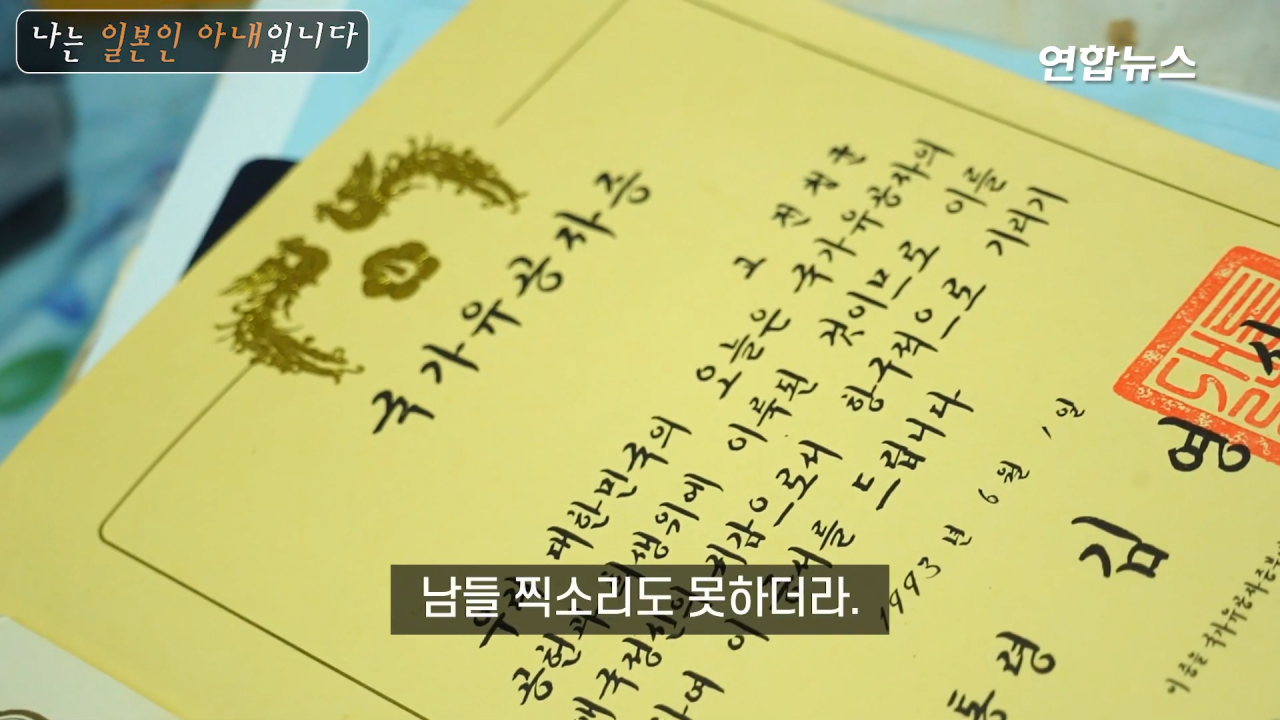 나는 일본인 아내입니다
연합뉴스
국가유공자증
고 전 청 운
우리 대한민국의 오늘은 국가유공자의
공헌과 희생위에 이룩된 것이므로 이를
애국정신의 귀감으로서 항구적으로 기리기
하여 이 증서를 드립니다
1993년 6월 1일
통령 김 영
이 증을 국가유공자증부
남들 찍소리도 못하더라.